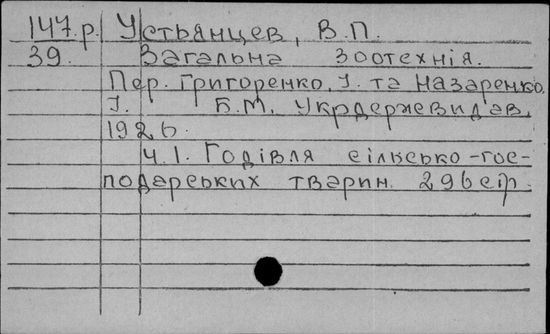 147.р. Устьянцев, В.П.
39. Загальна зоотехнія.
Пер. Григоренко, І. та Назаренко
І. Б.М. Укрдержевидав,
1926.
Ч.І. Годівля сільсько-гос-
подарських тварин. 296 стр.